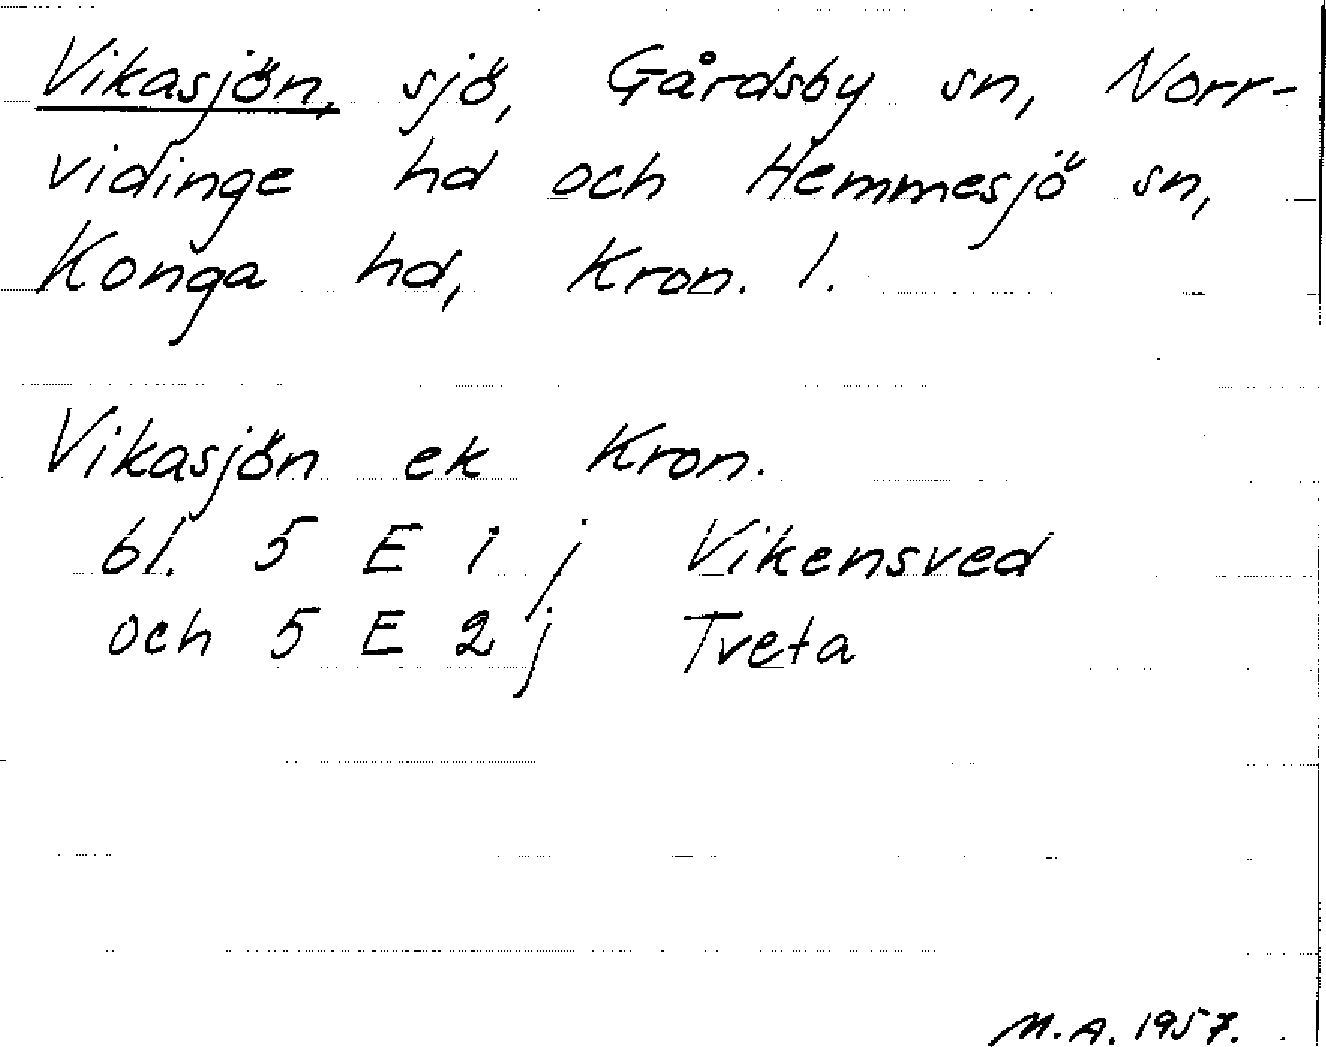 Vikasjön, sjö, Gårdsby sn, Norr-
vidinge hd och Hemmesjö sn,
Konga hd, Kron. l.
Vikasjön ek Kron.
bl. 5 E 1 j Vikensved
och 5 E 2 j Tveta
M.A. 1957.